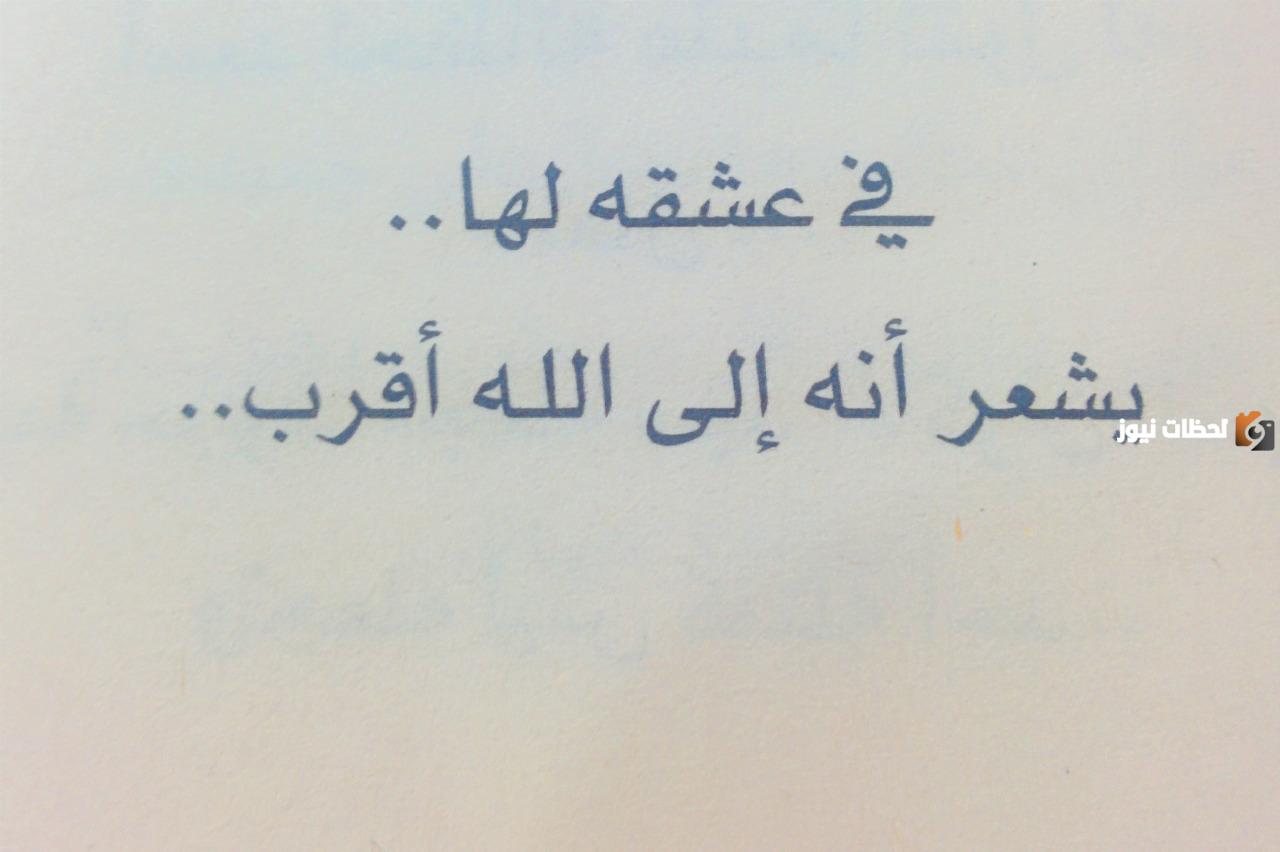 في عشقه لها..
يشعر أنه إلى الله أقرب..
لحظات نيوز